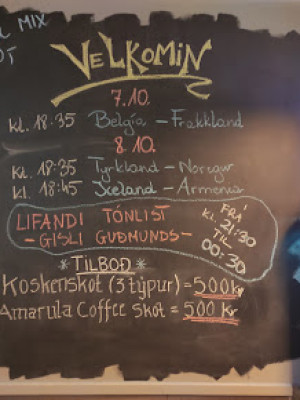 MIX
VELKOMIN
7.10.
KL. 18:35 Belgía – Frakkland
8.10.
KL. 18:35 Tyrkland – Noregur
KL. 18:45 Iceland – Armenia
LIFANDI TÓNLIST
- GISLI GUÐMUNDS -
FRÁ
KL. 21:30
TIL
00:30
*TILBOÐ*
Koskenskot (3 týpur) = 500kr
Amarula Coffee skot = 500 Kr